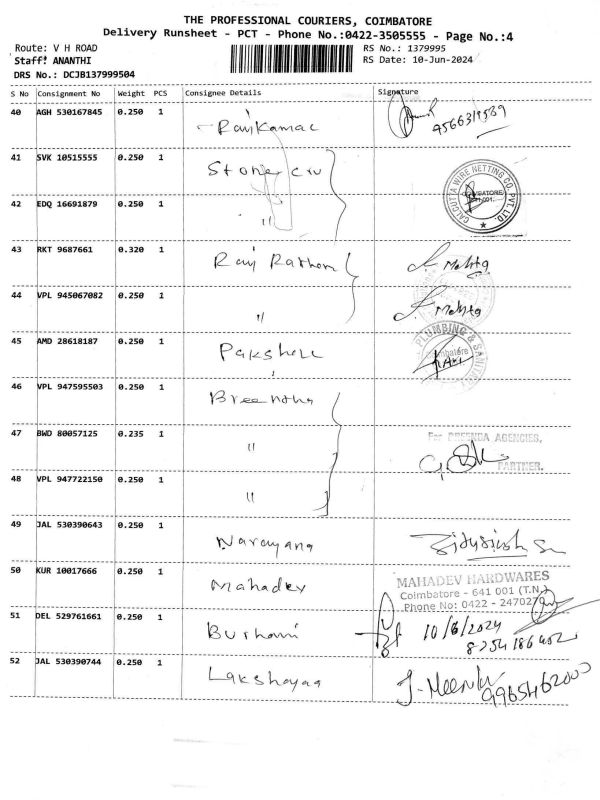 THE PROFESSIONAL COURIERS, COIMBATORE
Delivery Runsheet - PCT - Phone No.:0422-3505555 - Page No.:4
Route: V H ROAD RS No.: 1379995
Staff: ANANTHI RS Date: 10-Jun-2024
DRS No.: DCJB137999504
S No Consignment No Weight PCS Consignee Details Signature
40 AGH 530167845 0.250 1 Ravikamal
41 SVK 10515555 0.250 1 Stone cru CALCUTTA WIRE NETTING CO. PVT. LTD. COIMBATORE 641 001.
42 EDQ 16691879 0.250 1 "
43 RKT 9687661 0.320 1 Ravi Rathore Mehta
44 VPL 945067082 0.250 1 " Mehta
45 AMD 28618187 0.250 1 PLUMBING & SANITARY Coimbatore
46 VPL 947595503 0.250 1 Breendha
47 BWD 80057125 0.235 1 " For BREENDA AGENCIES,
PARTNER.
48 VPL 947722150 0.250 1 "
49 JAL 530390643 0.250 1 Narayana
50 KUR 10017666 0.250 1 Mahadev MAHADEV HARDWARES
Coimbatore - 641 001 (T.N.)
Phone No: 0422 - 2470270
51 DEL 529761661 0.250 1 Burhani 10/6/2024
8254186402
52 JAL 530390744 0.250 1 Lakshayaa J. Meenu
9965462000